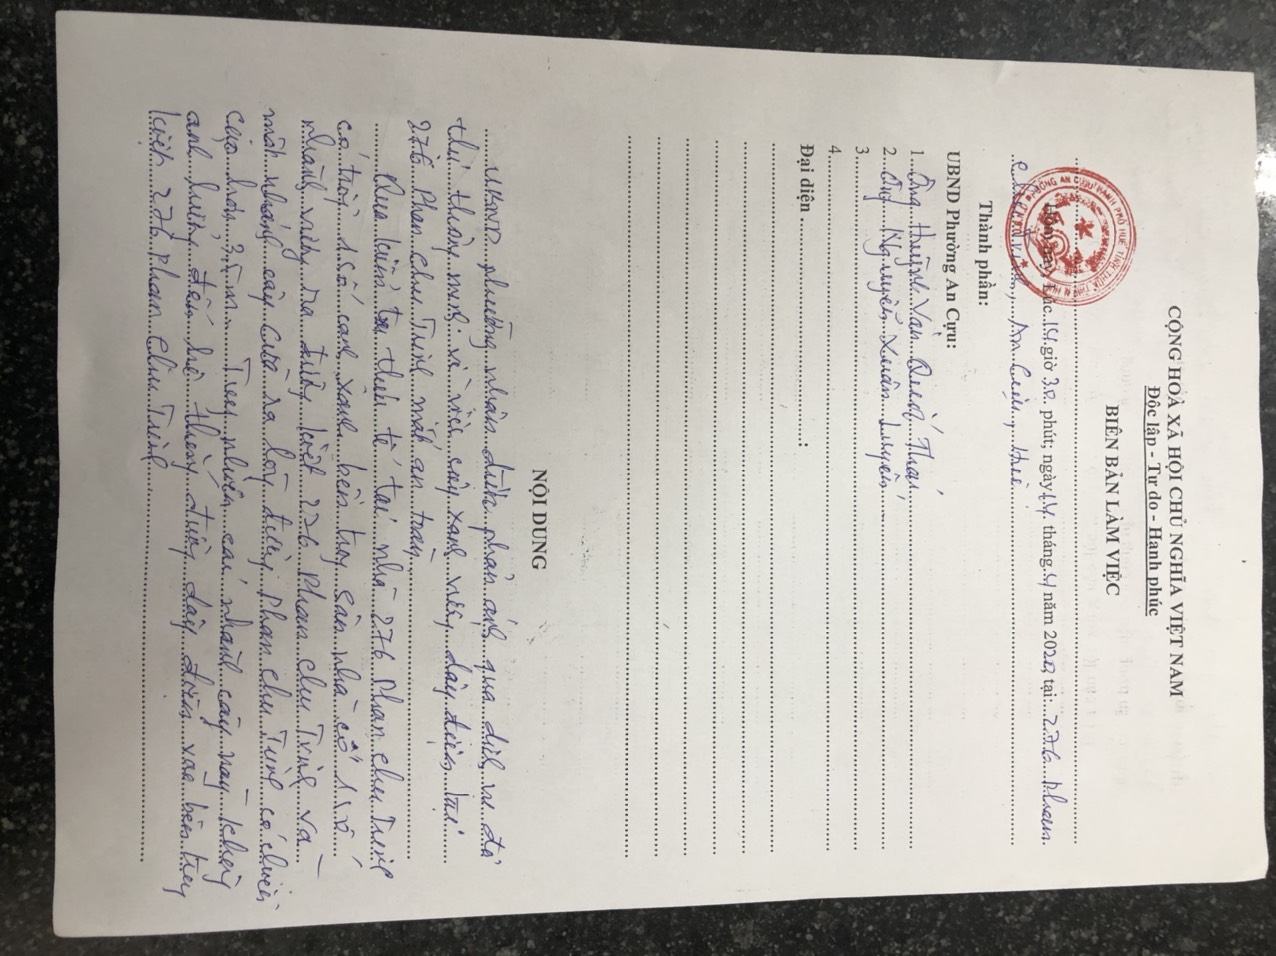 CỘNG HOÀ XÃ HỘI CHỦ NGHĨA VIỆT NAM
Độc lập - Tự do - Hạnh phúc
BIÊN BẢN LÀM VIỆC
Hôm nay, lúc 14 giờ 30 phút; ngày 14 tháng 4 năm 2020, tại: 276 Phan
Chu Trinh, An Cựu, Huế
Thành phần:
UBND Phường An Cựu:
1. Ông Huỳnh Văn Quốc Thái
2. Ông Nguyễn Xuân Luyện
3
4
Đại diện :
NỘI DUNG
UBND phường nhận được phản ánh qua dịch vụ đô
thị thông minh về việc cây xanh vướng dây điện tại
276 Phan Chu Trinh mất an toàn
Qua kiểm tra thực tế tại nhà 276 Phan Chu Trinh
có trồng 1 số cây xanh bên trong sân nhà có 1 số
nhánh vươn ra đường kiệt 276 Phan Chu Trinh và
một nhánh cây vươn ra lòng đường Phan Chu Trinh có chiều
cao hơn 3,5m. Tuy nhiên các nhánh cây này không
ảnh hưởng đến hệ thống đường dây điện vào bên trong
kiệt 276 Phan Chu Trinh